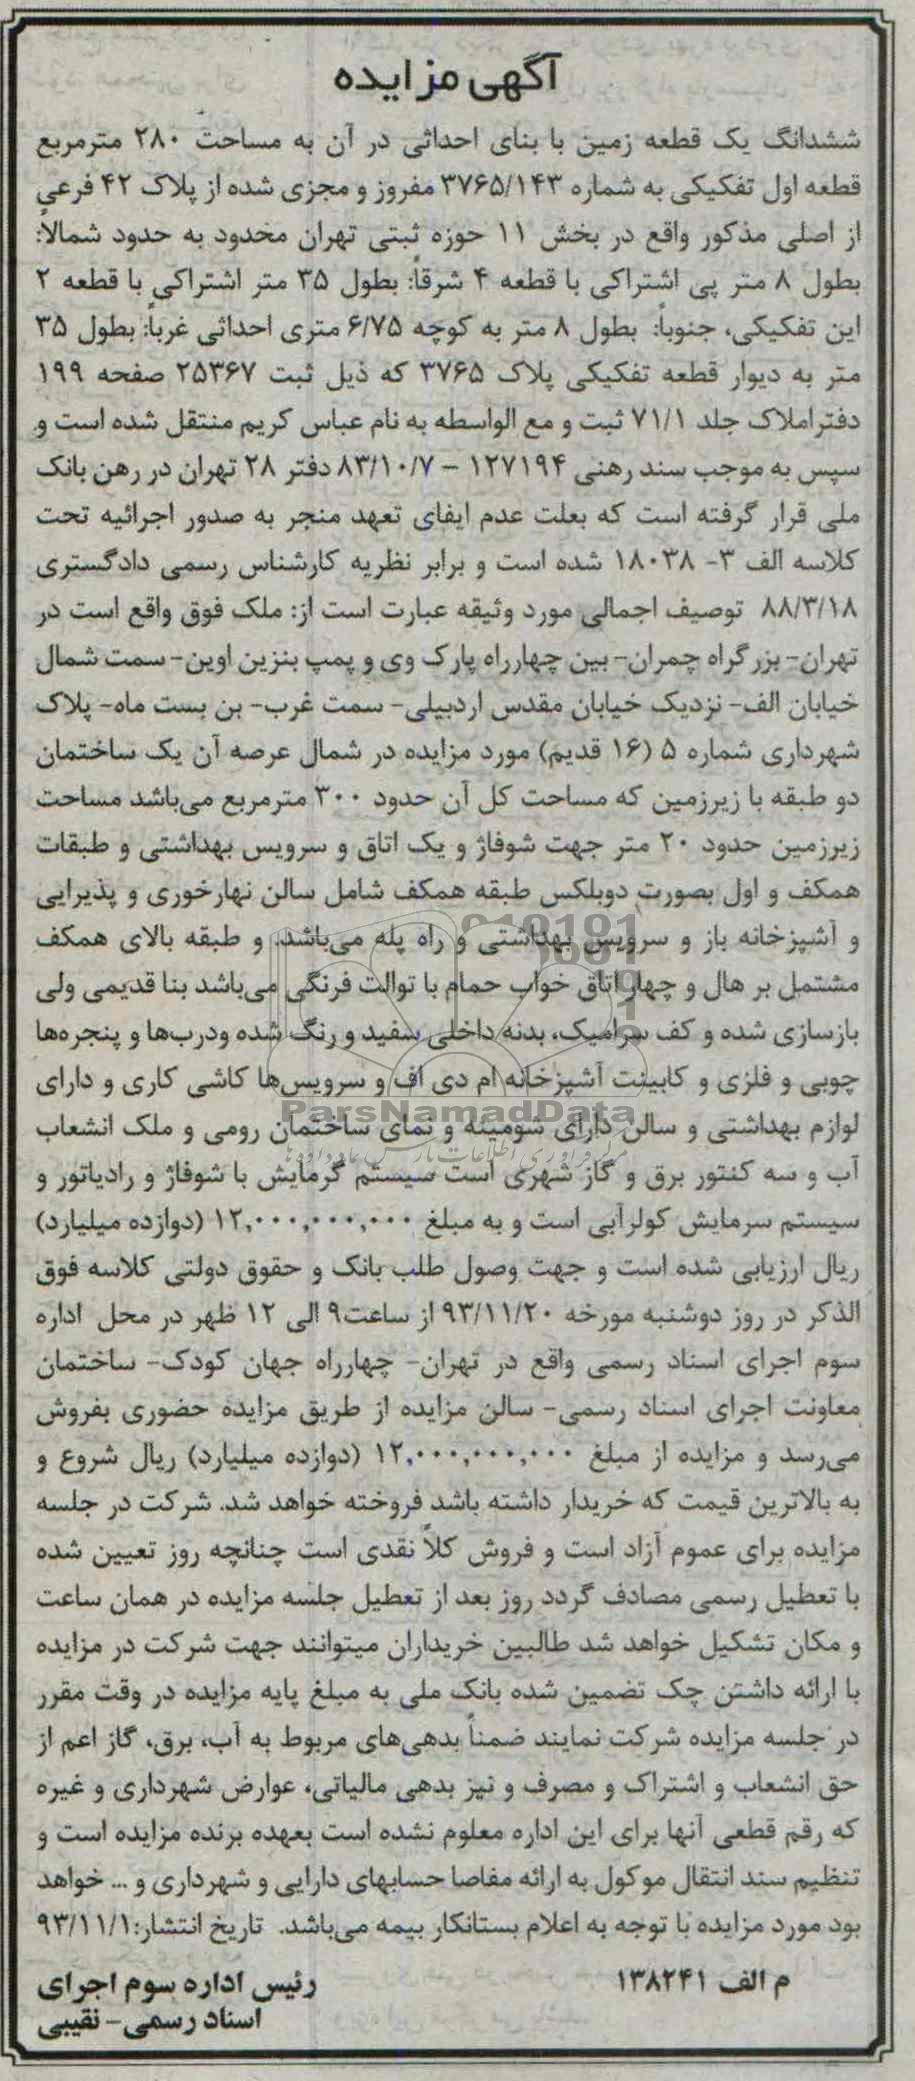 آگهی مزایده
ششدانگ یک قطعه زمین با بنای احداثی در آن به مساحت ۲۸۰ مترمربع
قطعه اول تفکیکی به شماره ۳۷۶۵/۱۴۳ مفروز و مجزی شده از پلاک ۴۲ فرعی
از اصلی مذکور واقع در بخش ۱۱ حوزه ثبتی تهران محدود به حدود شمالاً:
بطول ۸ متر پی اشتراکی با قطعه ۴ شرقاً: بطول ۳۵ متر اشتراکی با قطعه ۲
این تفکیکی، جنوباً: بطول ۸ متر به کوچه ۶/۷۵ متری احداثی غرباً: بطول ۳۵
متر به دیوار قطعه تفکیکی پلاک ۳۷۶۵ که ذیل ثبت ۲۵۳۶۷ صفحه ۱۹۹
دفتراملاک جلد ۷۱/۱ ثبت و مع الواسطه به نام عباس کریم منتقل شده است و
سپس به موجب سند رهنی ۱۲۷۱۹۴ – ۸۳/۱۰/۷ دفتر ۲۸ تهران در رهن بانک
ملی قرار گرفته است که بعلت عدم ایفای تعهد منجر به صدور اجرائیه تحت
کلاسه الف ۳- ۱۸۰۳۸ شده است و برابر نظریه کارشناس رسمی دادگستری
۸۸/۳/۱۸ توصیف اجمالی مورد وثیقه عبارت است از: ملک فوق واقع است در
تهران- بزرگراه چمران- بین چهارراه پارک وی و پمپ بنزین اوین- سمت شمال
خیابان الف- نزدیک خیابان مقدس اردبیلی- سمت غرب- بن بست ماه- پلاک
شهرداری شماره ۵ (۱۶ قدیم) مورد مزایده در شمال عرصه آن یک ساختمان
دو طبقه با زیرزمین که مساحت کل آن حدود ۳۰۰ مترمربع می‌باشد مساحت
زیرزمین حدود ۲۰ متر جهت شوفاژ و یک اتاق و سرویس بهداشتی و طبقات
همکف و اول بصورت دوبلکس طبقه همکف شامل سالن نهارخوری و پذیرایی
و آشپزخانه باز و سرویس بهداشتی و راه پله می‌باشد. و طبقه بالای همکف
مشتمل بر هال و چهار اتاق خواب حمام با توالت فرنگی می‌باشد بنا قدیمی ولی
بازسازی شده و کف سرامیک، بدنه داخلی سفید و رنگ شده ودرب‌ها و پنجره‌ها
چوبی و فلزی و کابینت آشپزخانه ام دی اف و سرویس‌ها کاشی کاری و دارای
ParsNamadData
لوازم بهداشتی و سالن دارای شومینه و نمای ساختمان رومی و ملک انشعاب
آب و سه کنتور برق و گاز شهری است سیستم گرمایش با شوفاژ و رادیاتور و
سیستم سرمایش کولرآبی است و به مبلغ ۱۲,۰۰۰,۰۰۰,۰۰۰ (دوازده میلیارد)
ریال ارزیابی شده است و جهت وصول طلب بانک و حقوق دولتی کلاسه فوق
الذکر در روز دوشنبه مورخه ۹۳/۱۱/۲۰ از ساعت۹ الی ۱۲ ظهر در محل اداره
سوم اجرای اسناد رسمی واقع در تهران- چهارراه جهان کودک- ساختمان
معاونت اجرای اسناد رسمی- سالن مزایده از طریق مزایده حضوری بفروش
می‌رسد و مزایده از مبلغ ۱۲,۰۰۰,۰۰۰,۰۰۰ (دوازده میلیارد) ریال شروع و
به بالاترین قیمت که خریدار داشته باشد فروخته خواهد شد. شرکت در جلسه
مزایده برای عموم آزاد است و فروش کلاً نقدی است چنانچه روز تعیین شده
با تعطیل رسمی مصادف گردد روز بعد از تعطیل جلسه مزایده در همان ساعت
و مکان تشکیل خواهد شد طالبین خریداران میتوانند جهت شرکت در مزایده
با ارائه داشتن چک تضمین شده بانک ملی به مبلغ پایه مزایده در وقت مقرر
در جلسه مزایده شرکت نمایند ضمناً بدهی‌های مربوط به آب، برق، گاز اعم از
حق انشعاب و اشتراک و مصرف و نیز بدهی مالیاتی، عوارض شهرداری و غیره
که رقم قطعی آنها برای این اداره معلوم نشده است بعهده برنده مزایده است و
تنظیم سند انتقال موکول به ارائه مفاصا حسابهای دارایی و شهرداری و ... خواهد
بود مورد مزایده با توجه به اعلام بستانکار بیمه می‌باشد. تاریخ انتشار:۹۳/۱۱/۱
م الف ۱۳۸۲۴۱
رئیس اداره سوم اجرای
اسناد رسمی- نقیبی